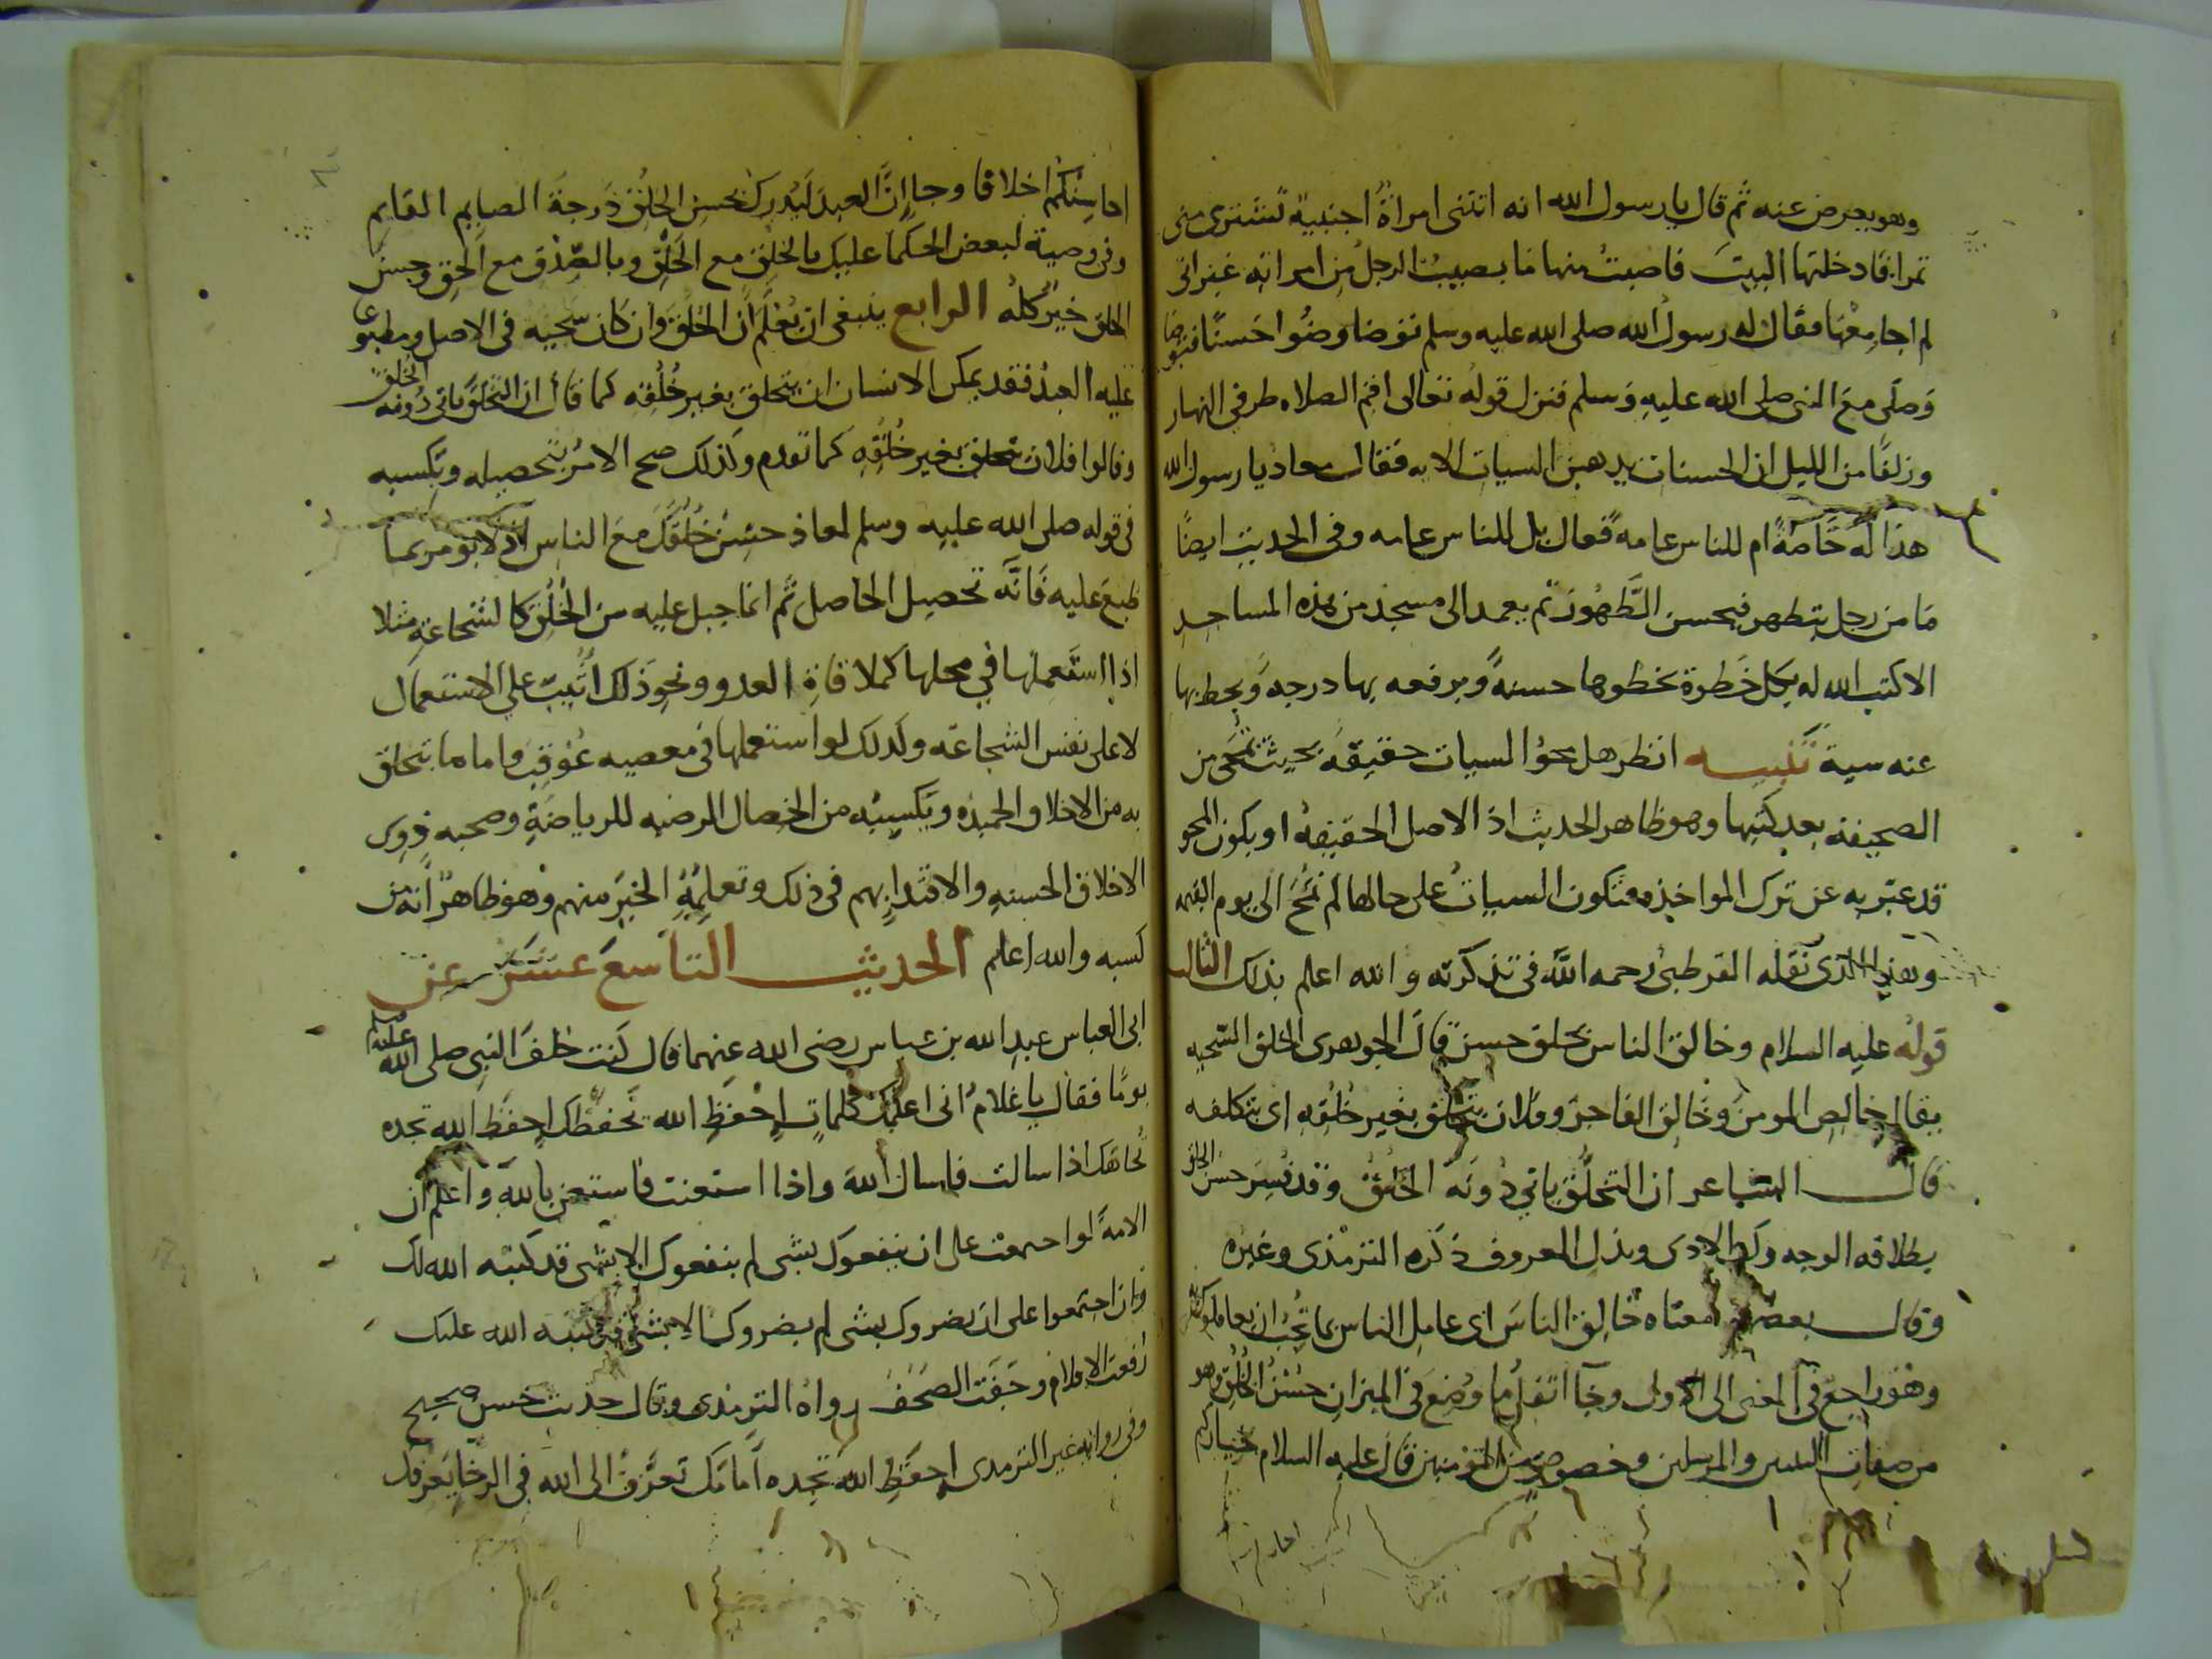 وهو يعرض عنه ثم قال يا رسول الله انه اتتنى امراةٌ اجنبية تشترى منى
تمرا فادخلتها البيتَ فاصبتُ منها ما يصيبُ الرجلُ من امراته غير انى
لم اجامعْها فقال له رسولُ الله صلى الله عليه وسلم توضا وضُوا حَسنًا فتوضا
وَصلّى معَ النبى صلى الله عليهِ وَسلم فنزل قولهُ تعالى اقم الصلاه طرفى النهار
وزلفًا من الليل ان الحسنات يدهبن السيات الايه فقال معاد يا رسول الله
هذا لَه خَاصَةً ام للناس عامه فقال بل للناس عامه وفى الحديث ايضًا
مَا من رجل يتطهر فيحسن الطَّهُورَ ثم يعمد الى مسجد من هذه المساجدِ
الا كتب الله له بكل خَطوة يخطوها حسنهً ويرفعه بها درجه وَيحط بها
عنه سية تنبيــه انظر هل محوُ السيات حقيقهً بحيث تُمحَى من
الصحيفه بعد كتبها وهو ظاهر الحديث اذ الاصل الحقيقهُ او يكون المحو
قد عبّر به عن ترك المواخذه فتكون السياتُ على حالها لم تُمْحَ الى يوم القيمه
وهذا الذى نَقله القرطبىُ رحمه اللَّه فى تذكرته و الله اعلم بذلك الثالث
قولهُ عليه السلام وخالق الناس بخلق حسن قالَ الجوهرى الخلق السّجيه
يقال خالِصِ المومنَ وخَالِق الفاجرَ وفلان يتخَلّق بغير خُلُقِهِ اى يتكلفه
قالــ الشاعر ان التخلُّق ياتى دُونَهُ الخُلُقُ وقد فُسِرَ حسنُ الخلق
بطلاقه الوجه وكف الادى وبذل المعروف ذكره الترمذى وغيره
وقالــ بعضهم معناه خَالِق الناسَ اى عامِل الناس بما تُحِبُ ان يعاملوك به
وهْو راجع فى المعنى الى الاولى وجاَ اثقلُ ما وُضِعَ فى الميزان حُسْنُ الخُلُقِ وهو
من صفات النبيين والمرسلين وخصوصِ من المؤمنين قال عليه السلام خياركم
احاسِنُكم اخلاقا وجا إنَّ العبدَ لَيُدرِكُ بحسنِ الخلُقِ دَرجةَ الصايم القايم
وفى وصية لبعض الحكما عليك بالخلقِ مع الخَلْقِ وبالصِّدْق مع الحق وحسن
الخلق خيرٌ كلهُ الرابع ينبغى ان يُعْلَمَ أن الخلقَ وان كان سَجيه فى الاصل ومطبوعا
عليه العبدُ فقد يمكن الانسان ان يتخلق بغير خُلُقِه كما قال ان التخلُّقَ ياتى دُونه الخلق
وقالوا فلان يتخلق بغير خُلُقِهِ كما تقدم ولذلك صح الامرُ بتحصيله وتكسبه
فى قوله صلى الله عليه وسلم لمعاذ حسّنْ خُلُقَكَ معَ الناسِ اذ لا يومر بما
طبعَ عليه فَانَّه تحصيل الحاصل ثم انما جبل عليه من الخُلُق كالشجاعةِ مثلا
اذا استَعملها في محلها كملاقاةِ العدو ونحو ذلك اُثيبَ على الاستعمال
لا على نفس الشجاعَه ولذلك لو استعملها فى معصيه عُوقِبَ واما ما يتخلق
به من الاخلاق الحميده ويكسبُه من الخصال المرضيه للرياضَةِ وصحبه ذوى
الاخلاق الحسنهِ والاقتدا بهم فى ذلك وتعلمِهِ الخيرَ منهم وهو ظاهرٌ انه من
كسبه والله اعلم الحديثــ التاسعَ عشَرَ عن
ابى العباس عبدِ الله بن عباس رضى الله عنهما قال كنت خلفَ النبىِ صلى الله عليه وسلم
يومًا فقالَ يا غلامُ انى اعلمُك كلماتٍ احْفظِ الله يَحفظْكَ احفظِ الله تجده
تُجاهَكَ اذا سالت فاسالِ اللهَ واذا استعنت فاستعن بالله وَاعلم ان
الامةَ لو اجتمعت على ان ينفعوك بشى لم ينفعوك الا بشى قد كتبَه الله لك
وان اجتمعوا على ان يضروك بشى لم يضروك الا بشى قد كتبه الله عليك
رُفعت الاقلام وجَفَّت الصُحُفُ رواهُ الترمذى وقال حديث حسن صحيح
وفى روايه غير الترمدى احفظِ اللهَ تجده اَمامَك تعرَّفْ الى الله فى الرخا يَعْرفْكَ